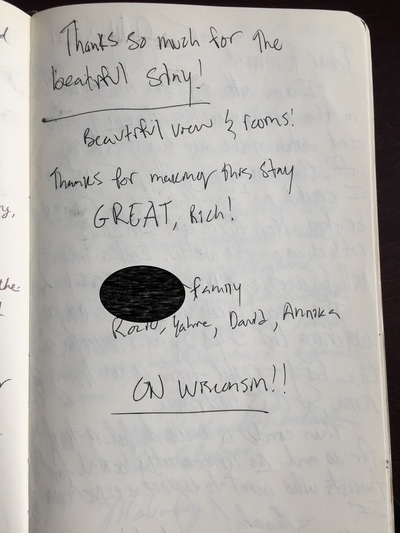 Thanks so much for the
beatiful stay!
Beautiful view & rooms!
Thanks for making this stay
GREAT, Rich!
family
Rocio, Yahve, David, Annika
ON WISCONSIN!!